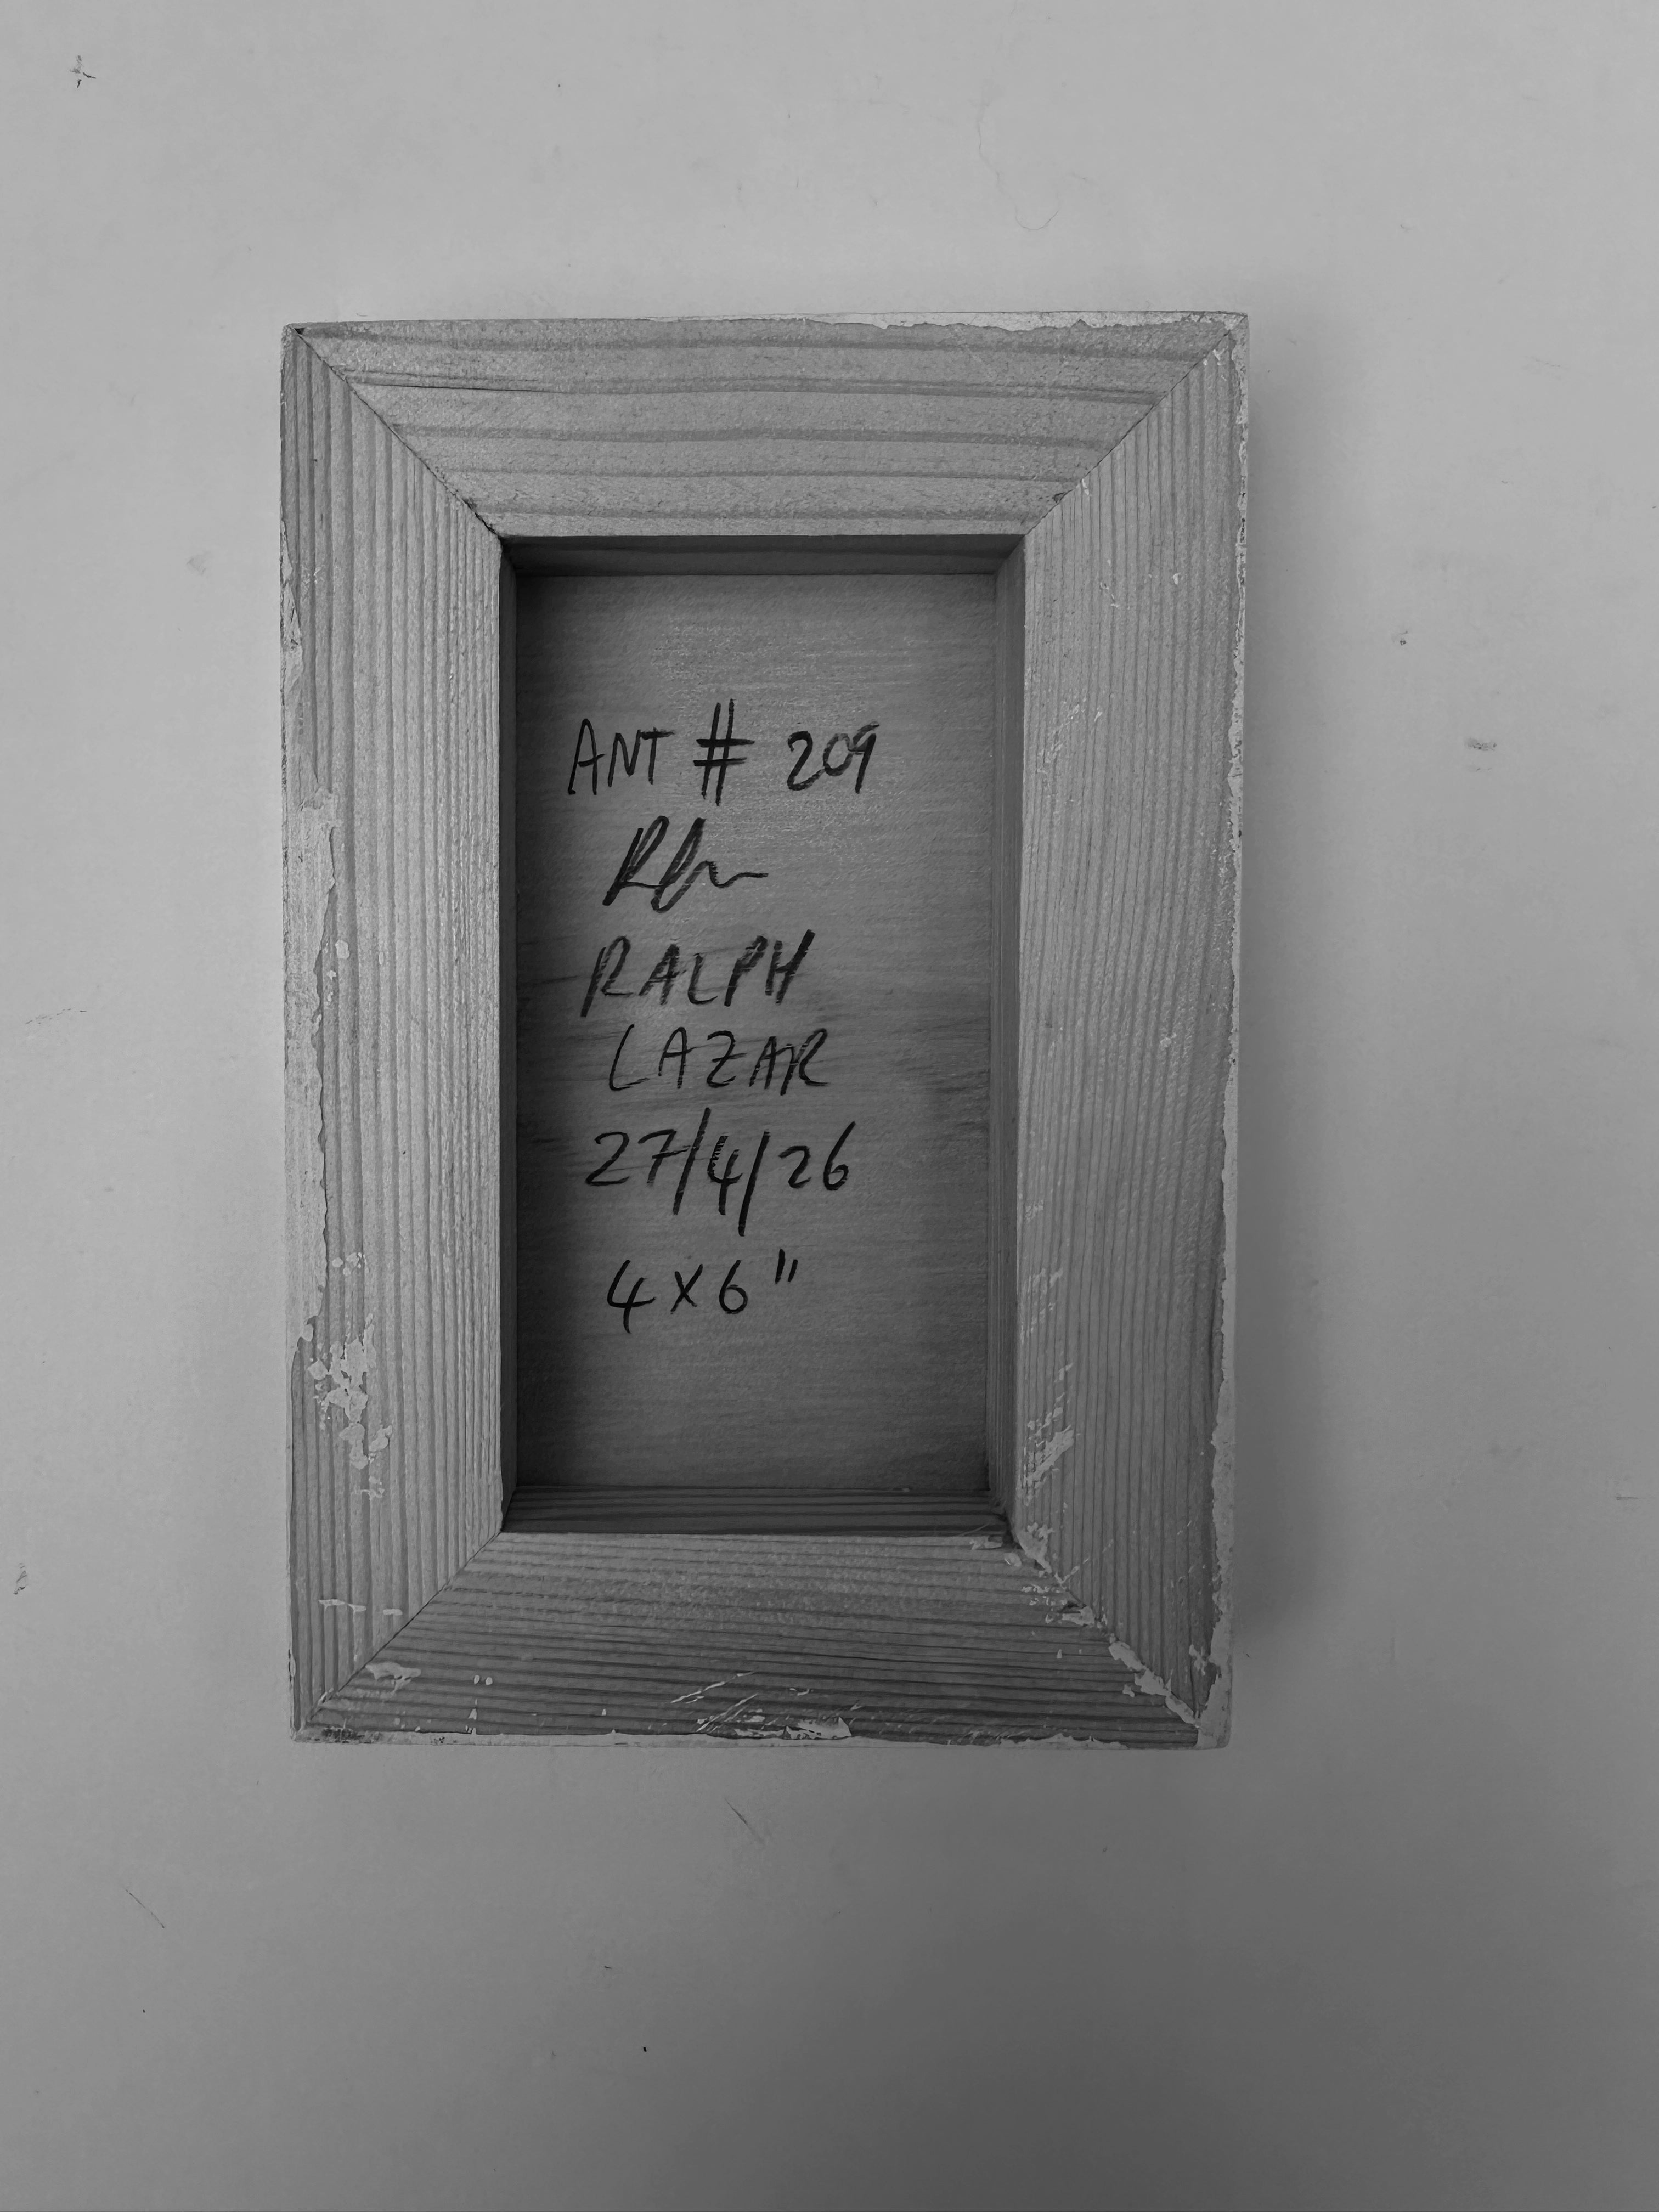 ANT # 209
RALPH
LAZAR
27/4/26
4x6"